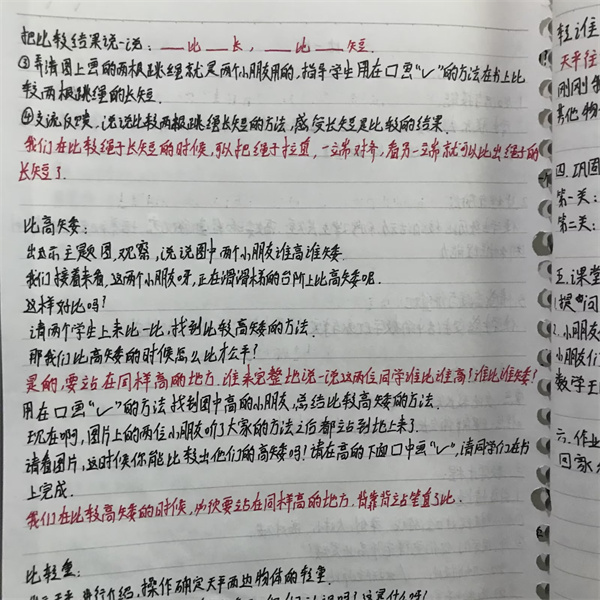 把比较结果说一说：__比__长，__比__短.
③弄清图上画的两根跳绳就是两个小朋友用的，指导学生用在口画“✓”的方法在书上比
较两根跳绳的长短.
④交流反馈.说说比较两根跳绳长短的方法，感受长短是比较的结果.
我们在比较绳子长短的时候，可以把绳子拉直，一端对齐，看另一端就可以比出绳子的
长短了.
比高矮：
出示主题图，观察，说说图中两个小朋友谁高谁矮.
我们接着来看，这两个小朋友呀，正在滑滑梯的台阶上比高矮呢.
这样对比吗？
请两个学生上来比一比，找到比较高矮的方法.
那我们比高矮的时候怎么比才公平？
是的，要站在同样高的地方.谁来完整地说一说这两位同学谁比谁高？谁比谁矮？
用在口画“✓”的方法找到图中高的小朋友，总结比较高矮的方法.
现在啊，图片上的两位小朋友听了大家的方法之后都站到地上来了.
请看图片，这时候你能比较出他们的高矮吗？请在高的下面口中画“✓”，请同学们在书
上完成.
我们在比较高矮的时候，必须要站在同样高的地方.背靠背站笔直了比.
比轻重：
进行介绍，操作确定天平两边物体的轻重.
轻谁
天平往
刚刚
其他物
四.巩固
第一关：
第二关：
五.课堂
1.提问
2.小朋友
小朋友们
数学王
六.作业
回家